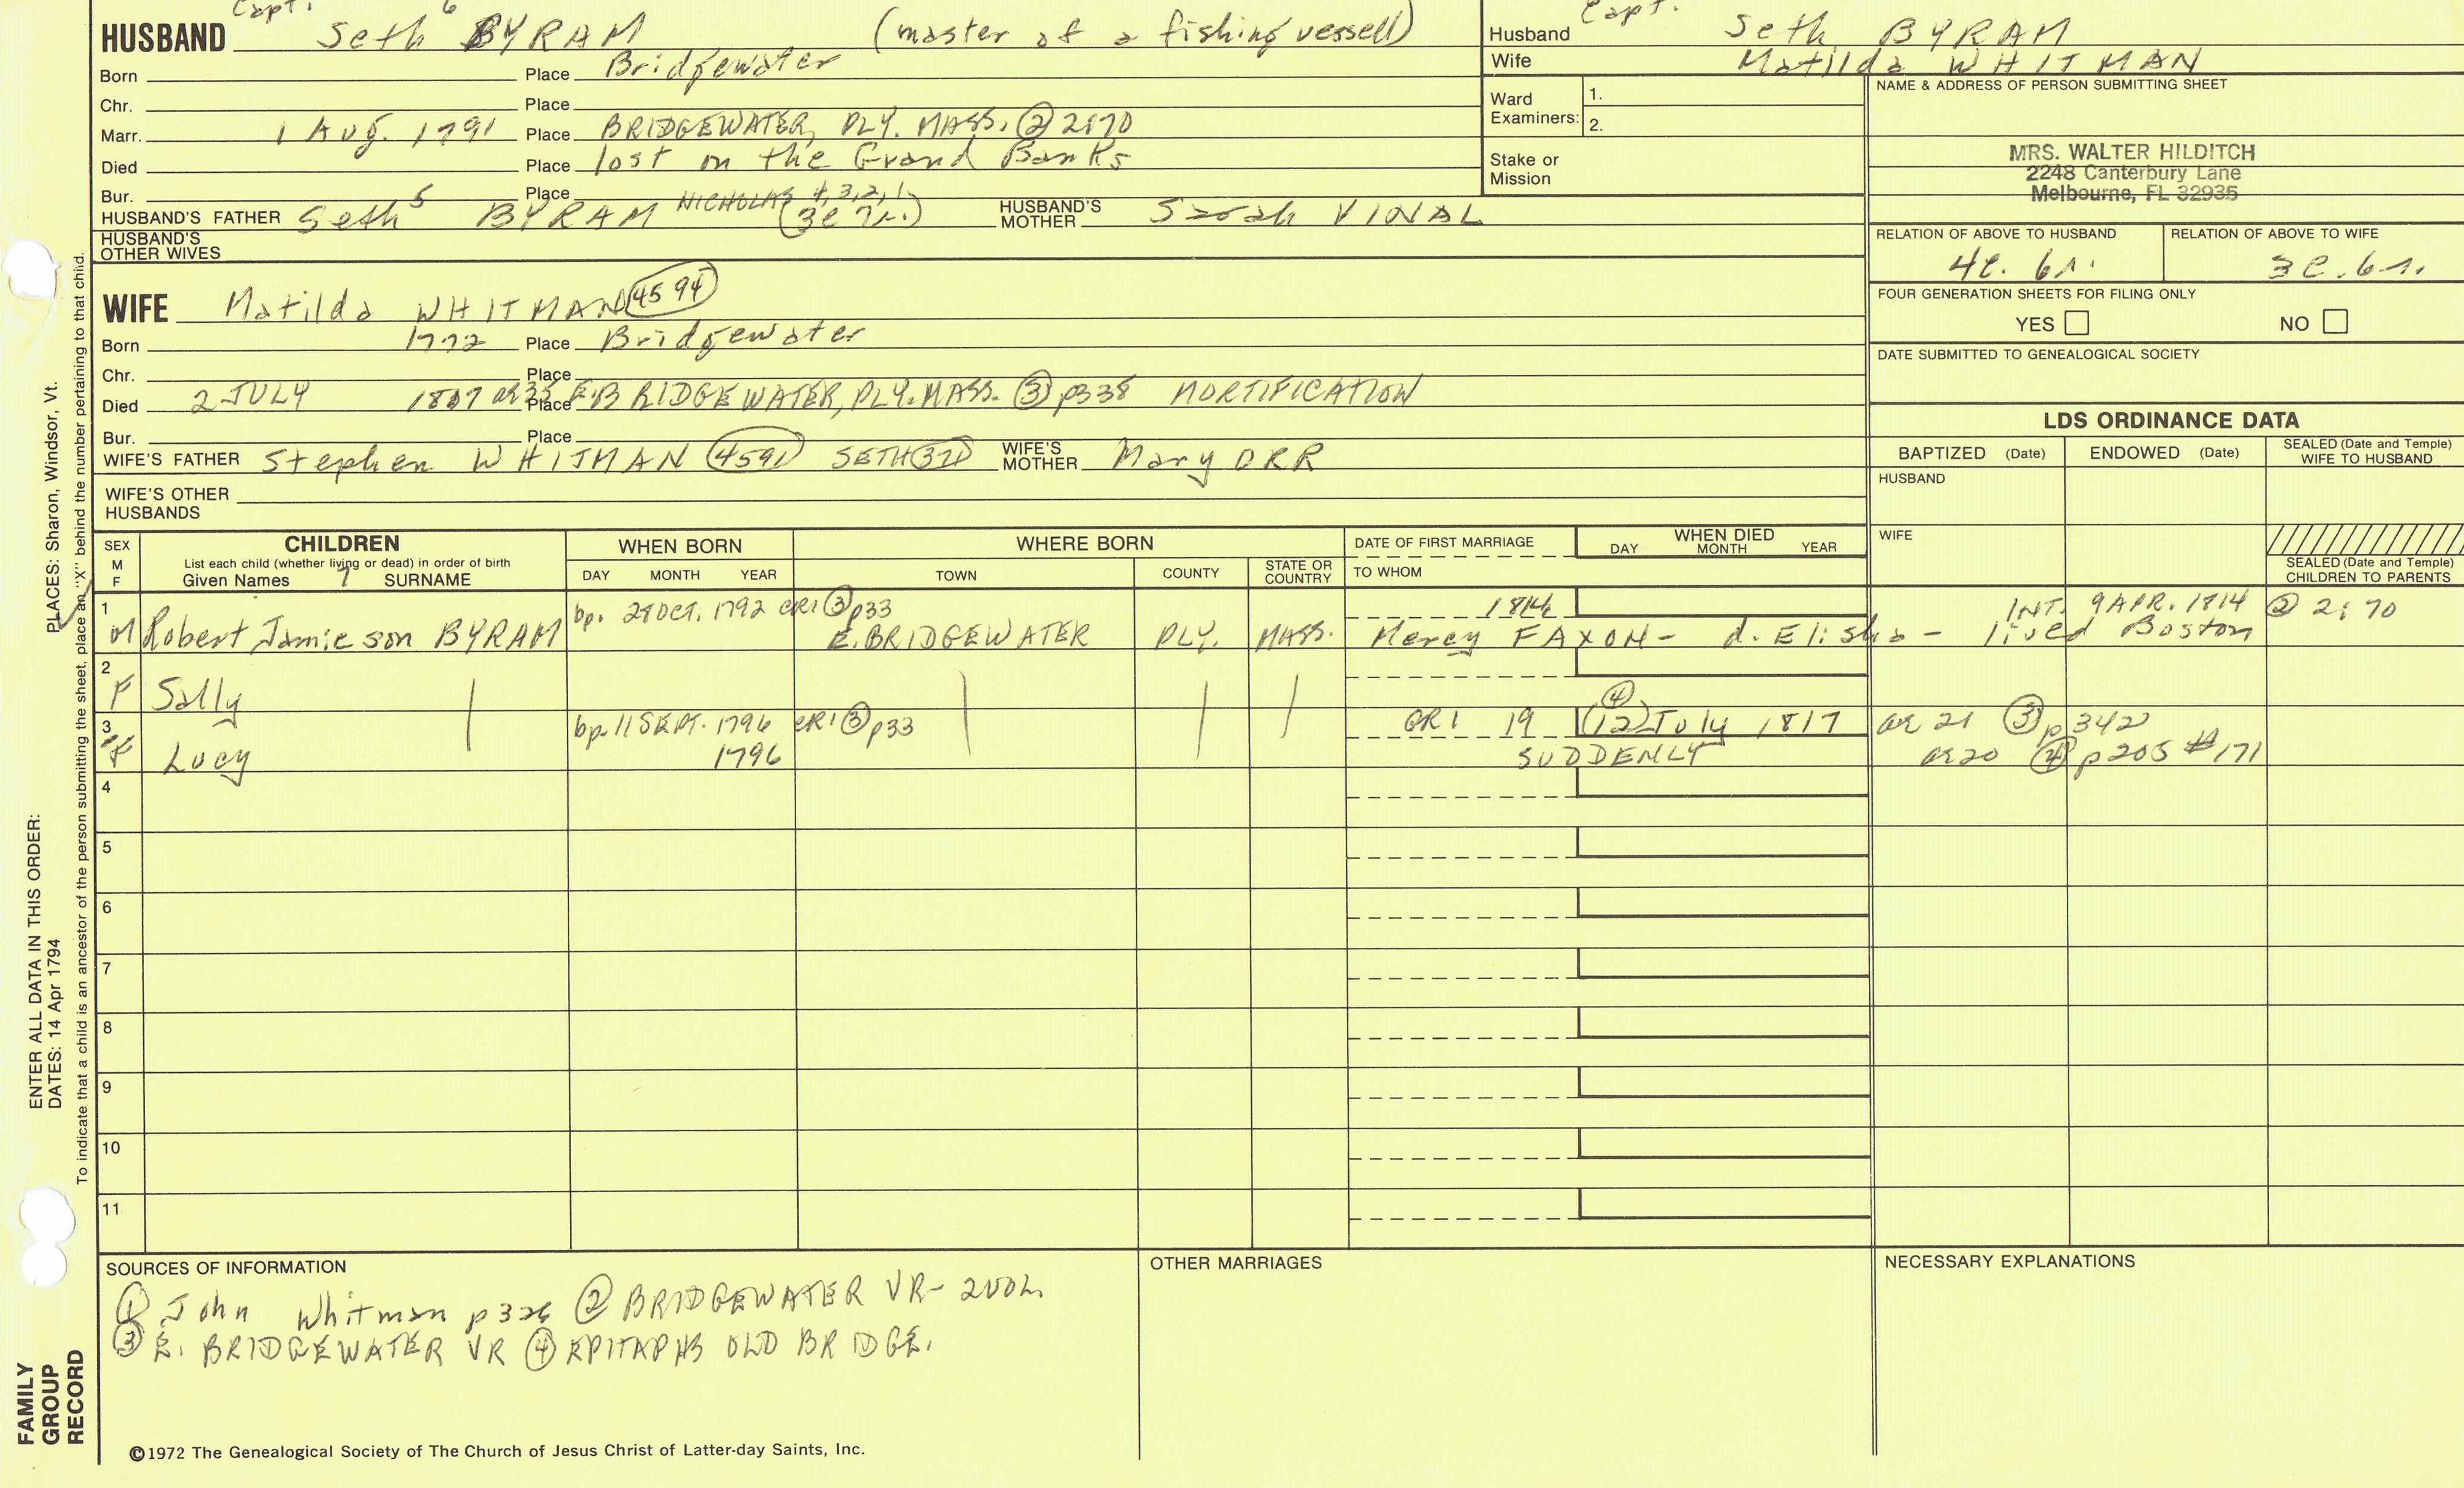 Capt. 6
HUSBAND Seth BYRAM (master of a fishing vessell)
Born Place Bridgewater
Chr. Place
Marr. 1 Aug. 1791 Place BRIDGEWATER, PLY. MASS. ② 2:70
Died Place lost on the Grand Banks
Bur. Place
HUSBAND'S FATHER Seth 5 BYRAM NICHOLAS 4,3,2,1 (3c 7r.) HUSBAND'S MOTHER Sarah VINAL
HUSBAND'S OTHER WIVES
WIFE Matilda WHITMAN 4594
Born 1772 Place Bridgewater
Chr. Place
Died 2 JULY Place E. BRIDGEWATER, PLY. MASS. ③ p338 MORTIFICATION
Bur. Place
WIFE'S FATHER Stephen WHITMAN 4591 SETH WIFE'S MOTHER Mary ORR
WIFE'S OTHER HUSBANDS
Husband Capt. Seth BYRAM
Wife Matilda WHITMAN
Ward Examiners: 1.
2.
Stake or Mission
NAME & ADDRESS OF PERSON SUBMITTING SHEET
MRS. WALTER HILDITCH
2248 Canterbury Lane
Melbourne, FL 32935
RELATION OF ABOVE TO HUSBAND RELATION OF ABOVE TO WIFE
4c. 6r. 3c. 6r.
FOUR GENERATION SHEETS FOR FILING ONLY
YES NO
DATE SUBMITTED TO GENEALOGICAL SOCIETY
LDS ORDINANCE DATA
BAPTIZED (Date) ENDOWED (Date) SEALED (Date and Temple) WIFE TO HUSBAND
HUSBAND
WIFE
SEALED (Date and Temple) CHILDREN TO PARENTS
SEX M F CHILDREN WHEN BORN WHERE BORN DATE OF FIRST MARRIAGE WHEN DIED
List each child (whether living or dead) in order of birth
Given Names SURNAME DAY MONTH YEAR TOWN COUNTY STATE OR COUNTRY TO WHOM DAY MONTH YEAR
1 bp. 28 OCT. 1792 CR1 ③ p33 1814 INT. 9 APR. 1814 ② 2:70
M Robert Jamieson BYRAM E. BRIDGEWATER PLY. MASS. Mercy FAXON - d. Elisha - lived Boston
2
F Sally
3 bp. 11 SEPT. 1796 CR1 ③ p33 GR1 19 (12) ④ July 1817 ae 21 ③ p342
F Lucy 1796 SUDDENLY ae 20 ④ p205 #171
4
5
6
7
8
9
10
11
SOURCES OF INFORMATION
① John Whitman p326 ② BRIDGEWATER VR - 2 VOL.
③ E. BRIDGEWATER VR ④ EPITAPHS OLD BRIDGE.
OTHER MARRIAGES
NECESSARY EXPLANATIONS
©1972 The Genealogical Society of The Church of Jesus Christ of Latter-day Saints, Inc.
FAMILY GROUP RECORD
ENTER ALL DATA IN THIS ORDER:
DATES: 14 Apr 1794 PLACES: Sharon, Windsor, Vt.
To indicate that a child is an ancestor of the person submitting the sheet, place an "X" behind the number pertaining to that child.